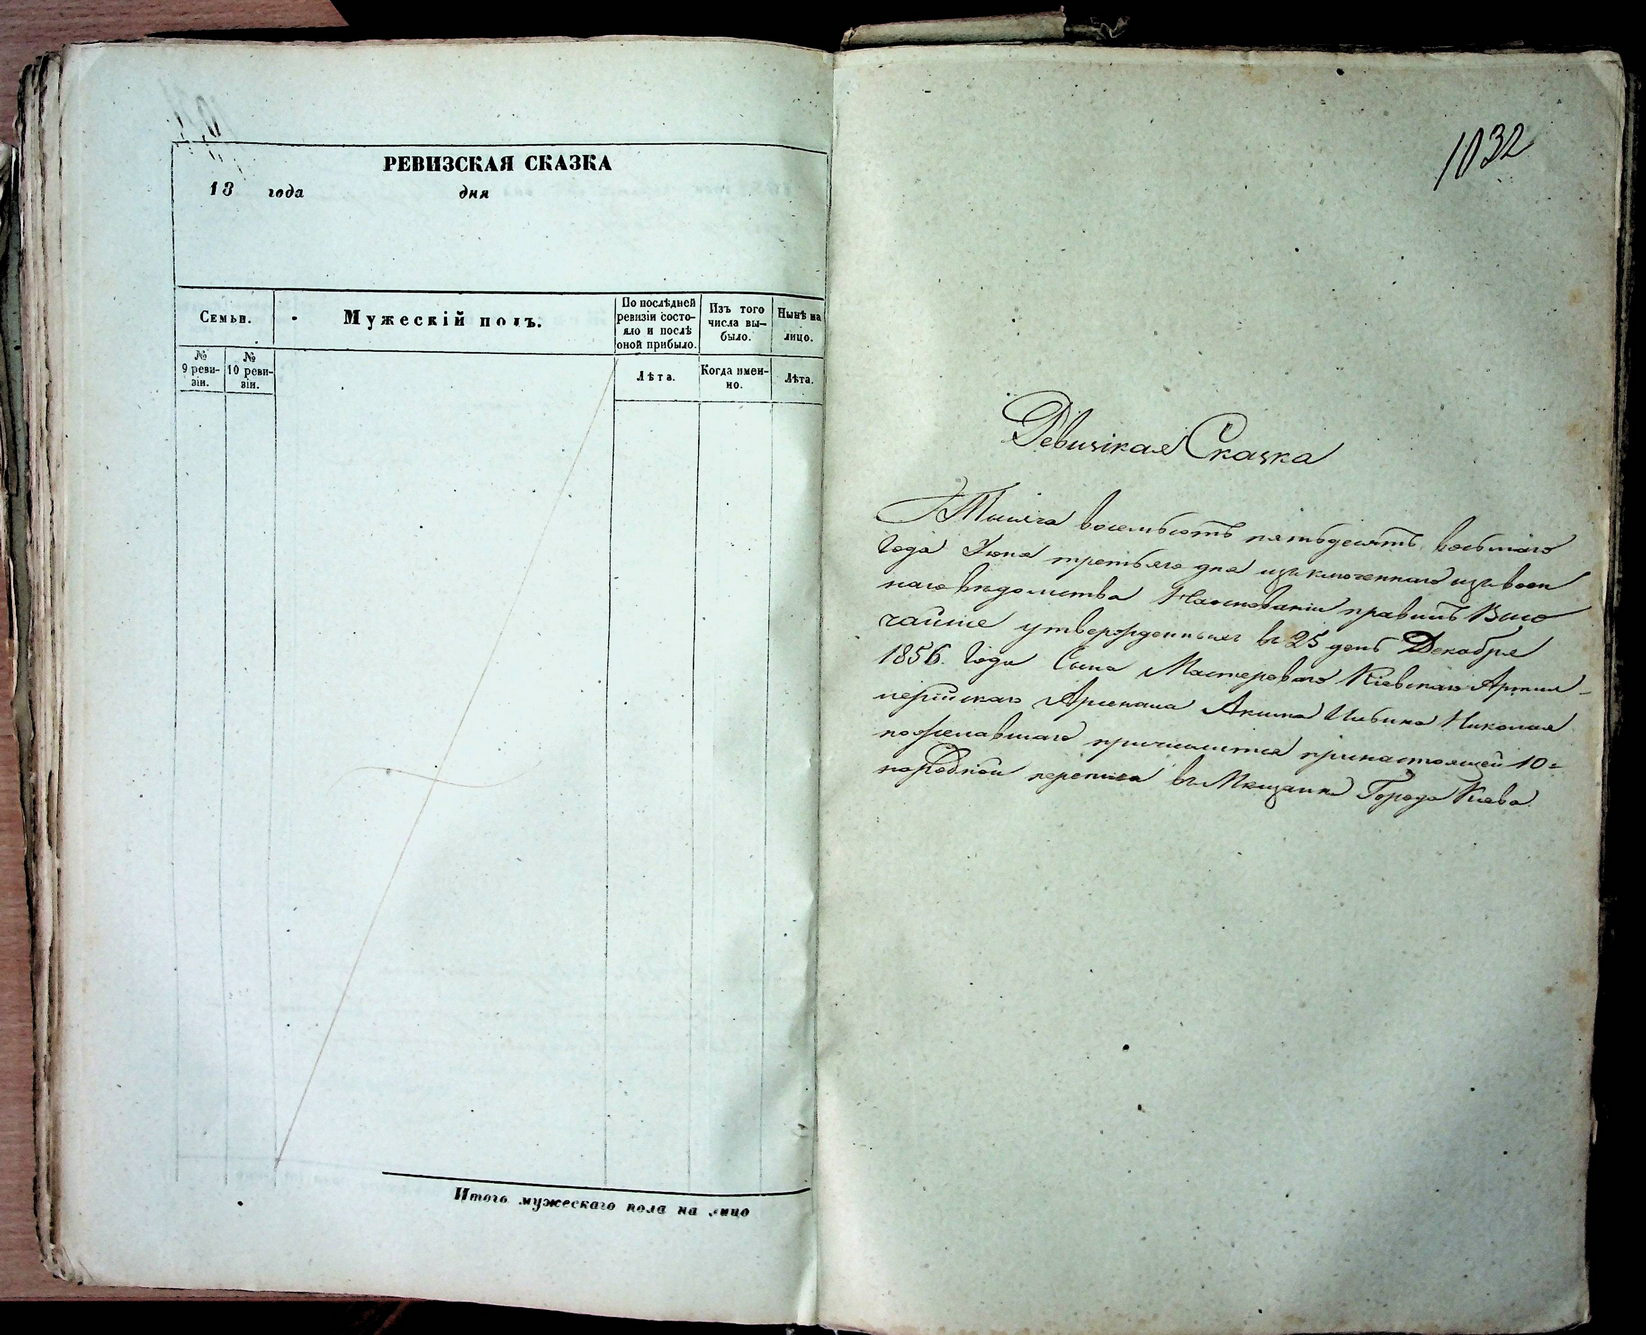 РЕВИЗСКАЯ СКАЗКА
18 года дня
Семьи.
Мужескій полъ.
По послѣдней
ревизіи состо-
яло и послѣ
оной прибыло.
Изъ того
числа вы-
было.
Нынѣ на
лицо.
№
9 реви-
зіи.
№
10 реви-
зіи.
Лѣта.
Когда имен-
но.
Лѣта.
Итого мужескаго пола на лицо
1032
Ревизская Сказка
Тысяча восемьсотъ пятьдесятъ восьмаго
Года Июня третьяго дня изключеннаго изъ воен
наго ведомства На основаніи правилъ Высо
чайше утвержденныхъ въ 25 день Декабря
1856. Года Сына Мастероваго Кіевскаго Артил-
лерійскаго Арсенала Акима Ильина Николая
пожелавшаго причислится при настоящей 10=
народной переписи въ Мещане Города Кіева